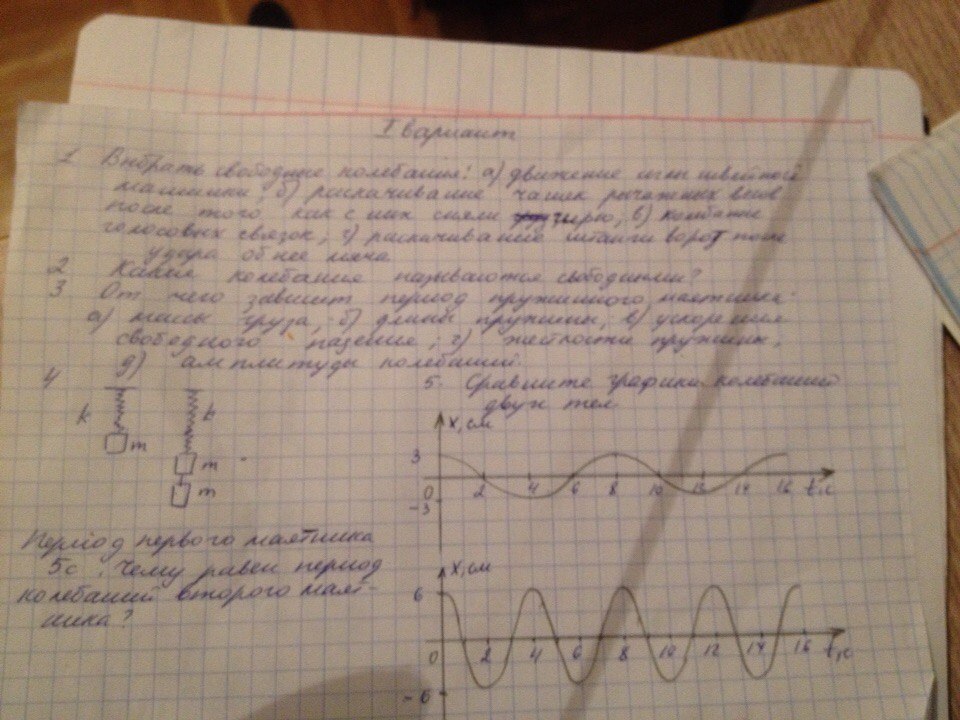 I вариант
1 Выбрать свободные колебания: а) движение иглы швейной
машинки; б) раскачивание чашек рычажных весов
после того как с них сняли гирю; в) колебание
голосовых связок; г) раскачивание штанги ворот после
удара об нее мяча
2 Какие колебания называются свободными?
3 От чего зависит период пружинного маятника:
а) массы груза, б) длины пружины; в) ускорения
свободного падения; г) жесткости пружины,
д) амплитуды колебаний.
4
k
m
k
m
m
Период первого маятника
5с. Чему равен период
колебаний второго маят-
ника?
5. Сравните графики колебаний
двух тел
x, см
3
0
-3
2 4 6 8 10 12 14 16 t, с
x, см
6
0
-6
2 4 6 8 10 12 14 16 t, с